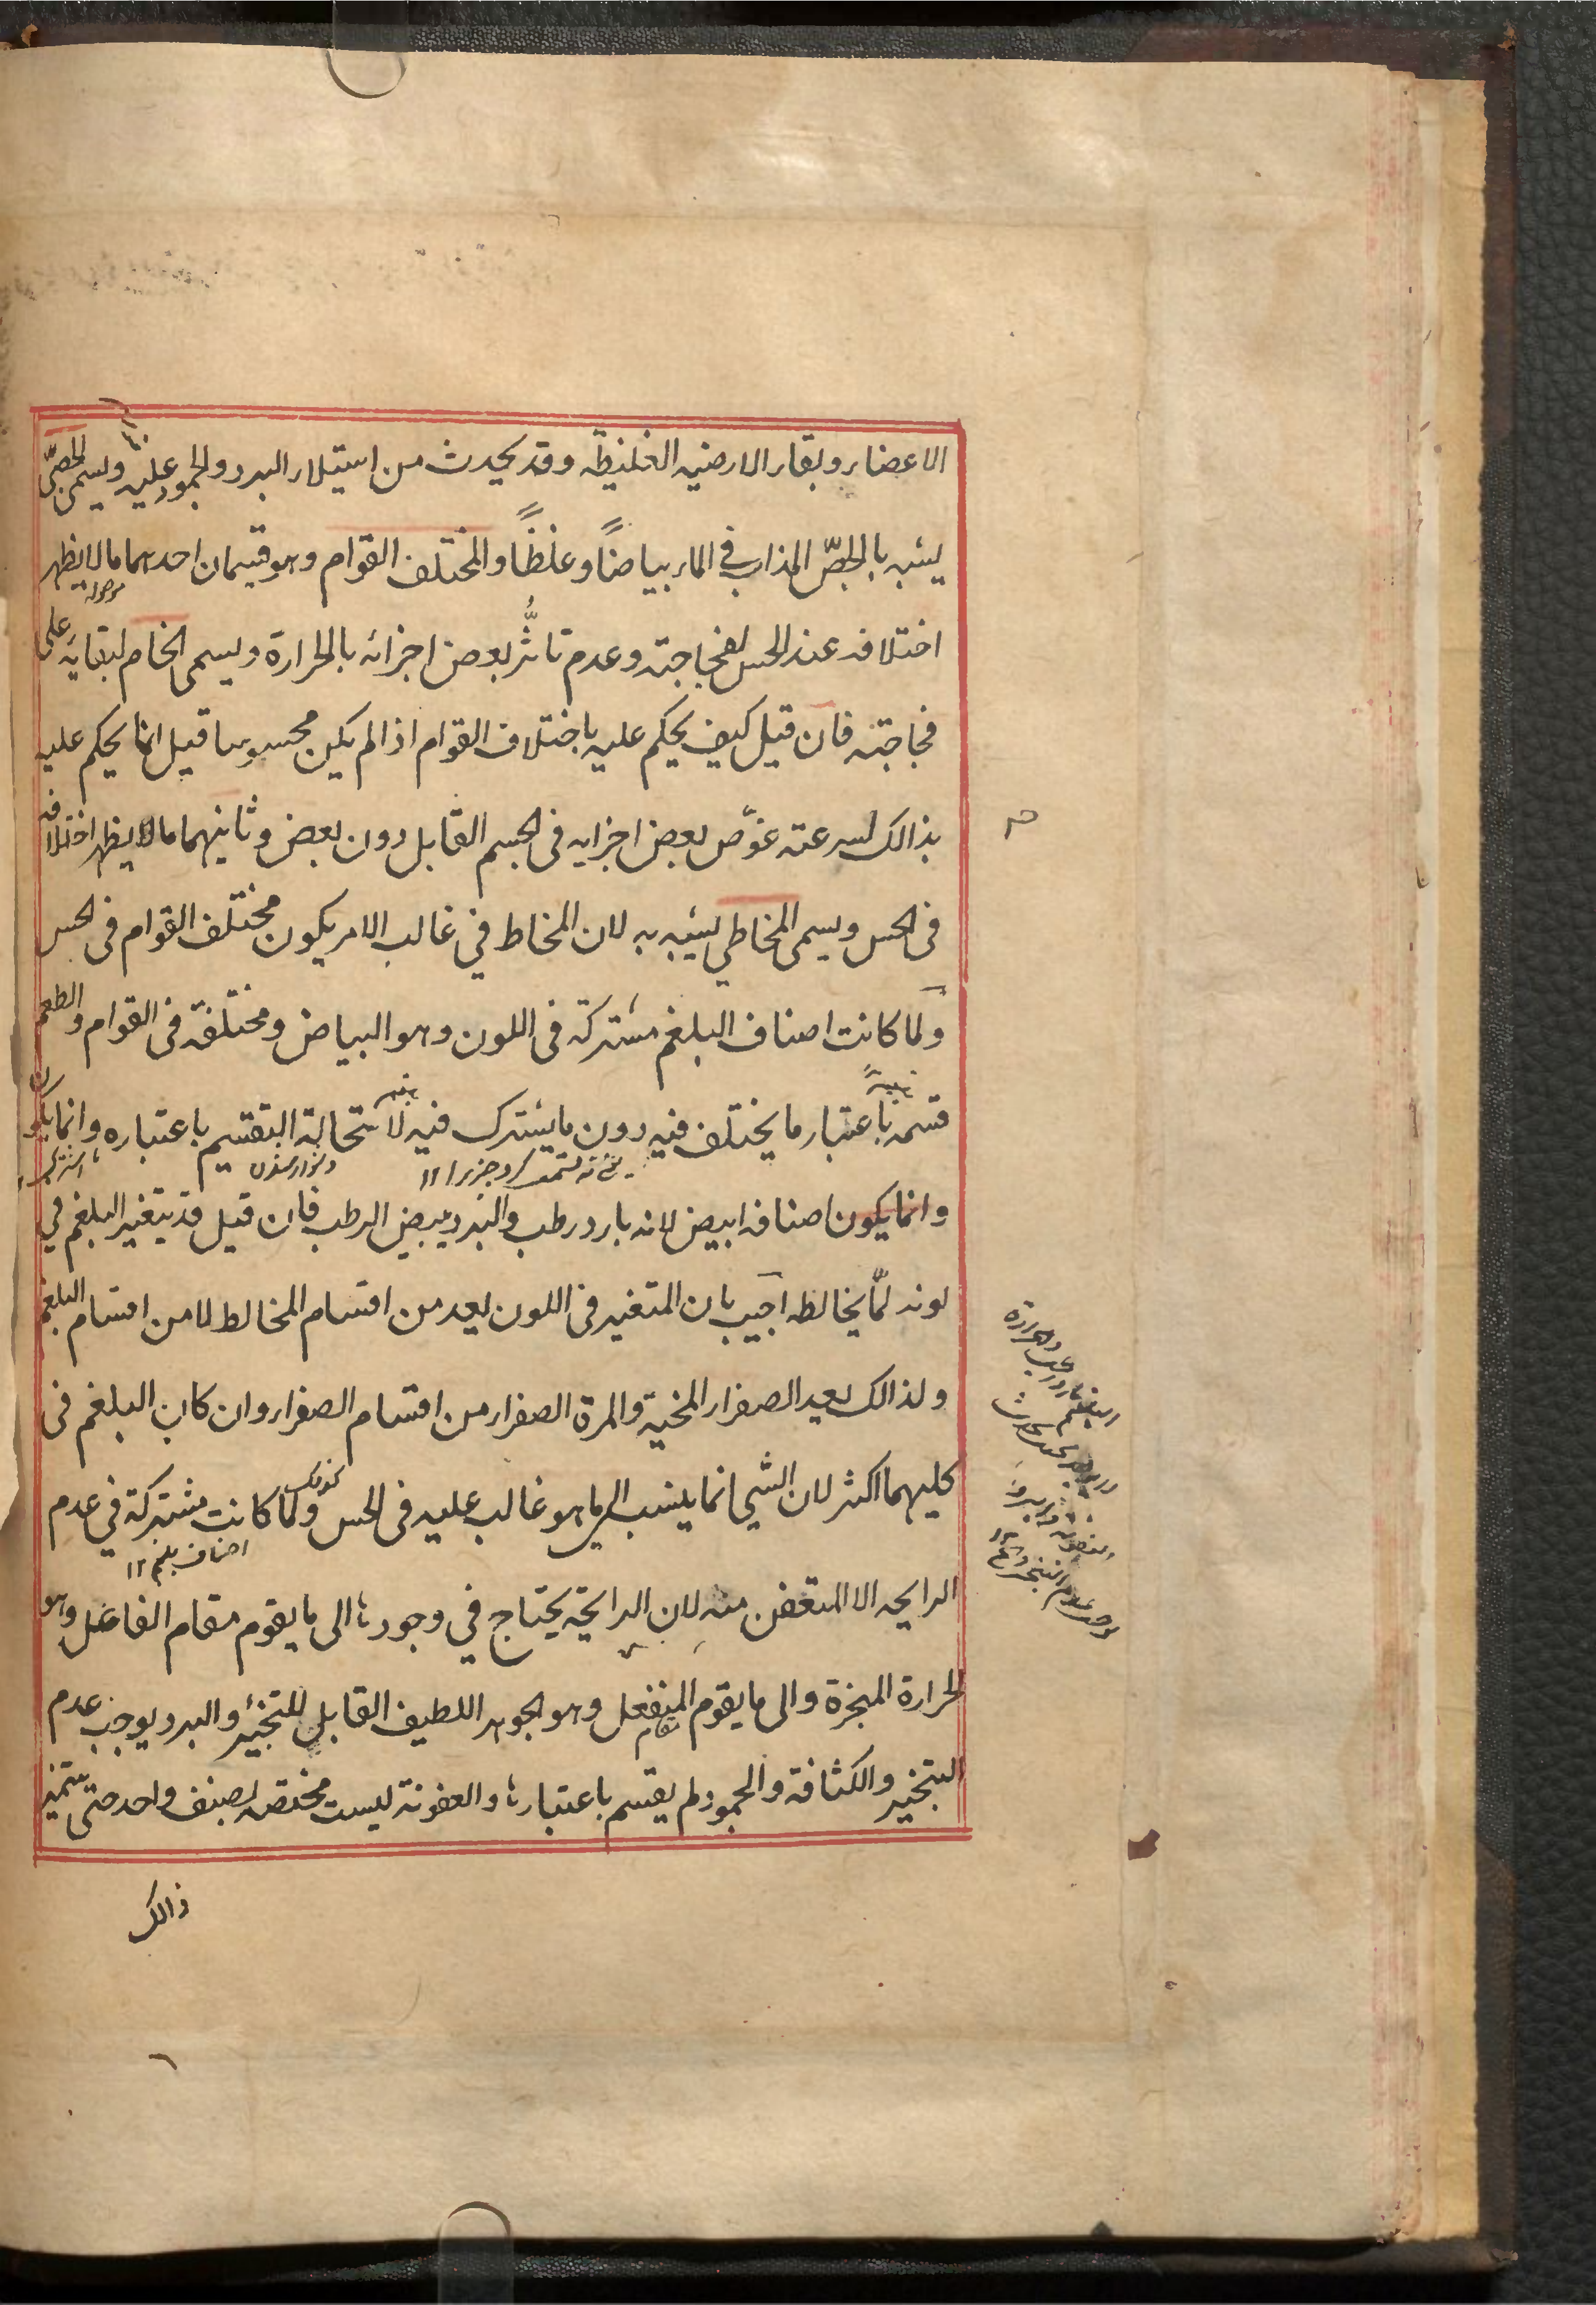 الاعضاء وبقاء الارضيه الغليظه وقد يحدث من استيلاء البرد والجمود عليه ويسمى الجصّى
يشبه بالجصّ المذاب في الماء بياضاً وغلظاً والمختلف القوام وهو قسمان احدهما ما لا يظهر
اختلافه عند الحس لفجاجته وعدم تاثّر بعض اجزائه بالحرارة ويسمى الخام لبقايه على
فجاجته فان قيل كيف يحكم عليه باختلاف القوام اذا لم يكن محسوسا قيل انما يحكم عليه
بذالك لسرعته غوّص بعض اجزايه فى الجسم القابل دون بعض وثانيهما ما يظهر اختلافه
فى الحس ويسمى المخاطي يشبه به لان المخاط في غالب الامر يكون مختلف القوام فى الحس
ولما كانت اصناف البلغم مشتركة فى اللون وهو البياض ومختلفة فى القوام والطعم
قسمه باعتبار ما يختلف فيه دون ما يشترك فيه لاستحالة التقسيم باعتباره وانما يكون
وانما يكون اصنافه ابيض لانه بارد رطب والبرد يبيض الرطب فان قيل قد يتغير البلغم في
لونه لمّا يخالطه اجيب بان المتغير فى اللون يعد من اقسام المخالط لا من اقسام البلغم
ولذالك يعد الصفراء المخية والمرة الصفراء من اقسام الصفراء وان كان البلغم فى
كليهما اكثر لان الشي انما ينسب الى ما هو غالب عليه فى الحس ولما كانت مشتركة في عدم
اصناف بلغم ١٢
الرايحه الا المتعفن منه لان الرايحة يحتاج في وجودها الى ما يقوم مقام الفاعل وهو
الحرارة المبخرة والى ما يقوم مقام المنفعل وهو الجوهر اللطيف القابل للتبخير والبرد يوجب عدم
التبخير والكثافة والجمود لم يقسم باعتبارها والعفونة ليست مختصه بصنف واحد حتى يتميز
ذالك